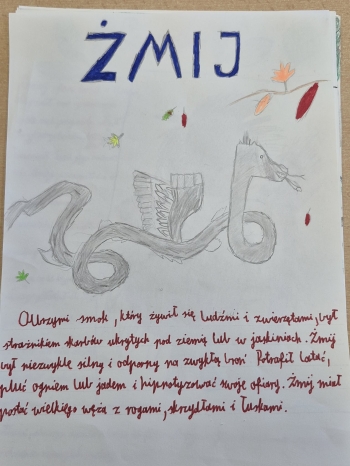 ŻMIJ
Olbrzymi smok, który żywił się ludźmi i zwierzętami, był
strażnikiem skarbów ukrytych pod ziemią lub w jaskiniach. Żmij
był niezwykle silny i odporny na zwykłą broń Potrafił latać,
pluć ogniem lub jadem i hipnotyzować swoje ofiary. Żmij miał
postać wielkiego węża z rogami, skrzydłami i łuskami.